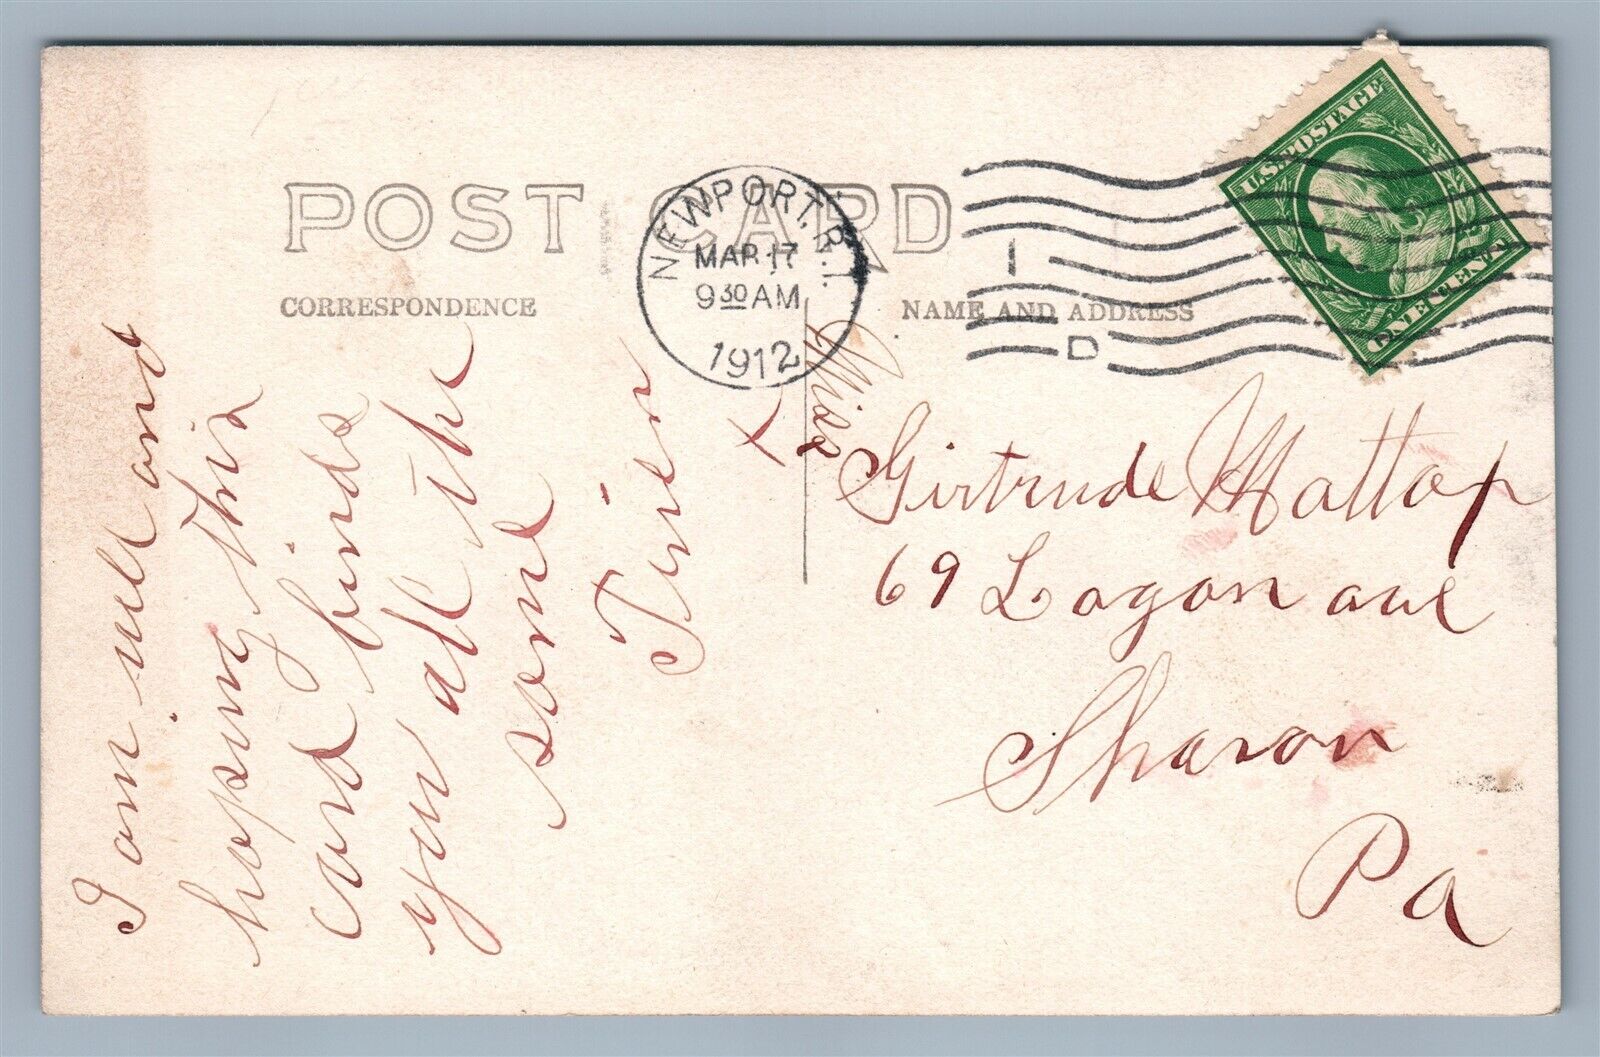 POST CARD
CORRESPONDENCE
NAME AND ADDRESS
NEWPORT, R.I.
MAR 17
9 30 AM
1912
1
D
U.S. POSTAGE
ONE CENT
I am well and
hoping this
card finds
you all the
some
Miss
Girtrude Mattap
69 Logan ave
Sharon
Pa